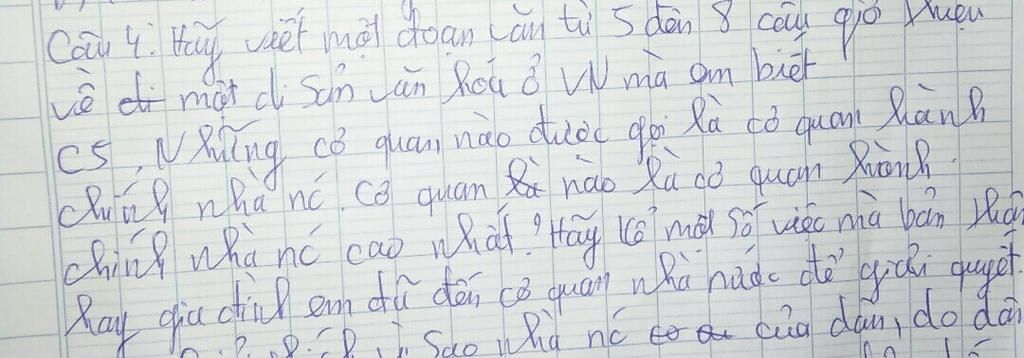 Câu 4. Hãy viết một đoạn văn từ 5 đến 8 câu giớ thiệu
về di một di sản văn hoá ở VN mà em biết
C5, Những cơ quan nào được gọi là cơ quan hành
chính nhà nc. Cơ quan là nào là cơ quan hành
chính nhà nc cao nhất? Hãy kể một số việc mà bản thân
hay gia đình em đã đến cơ quan nhà nước để giải quyết.
Sao nhà nc của dân, do dân